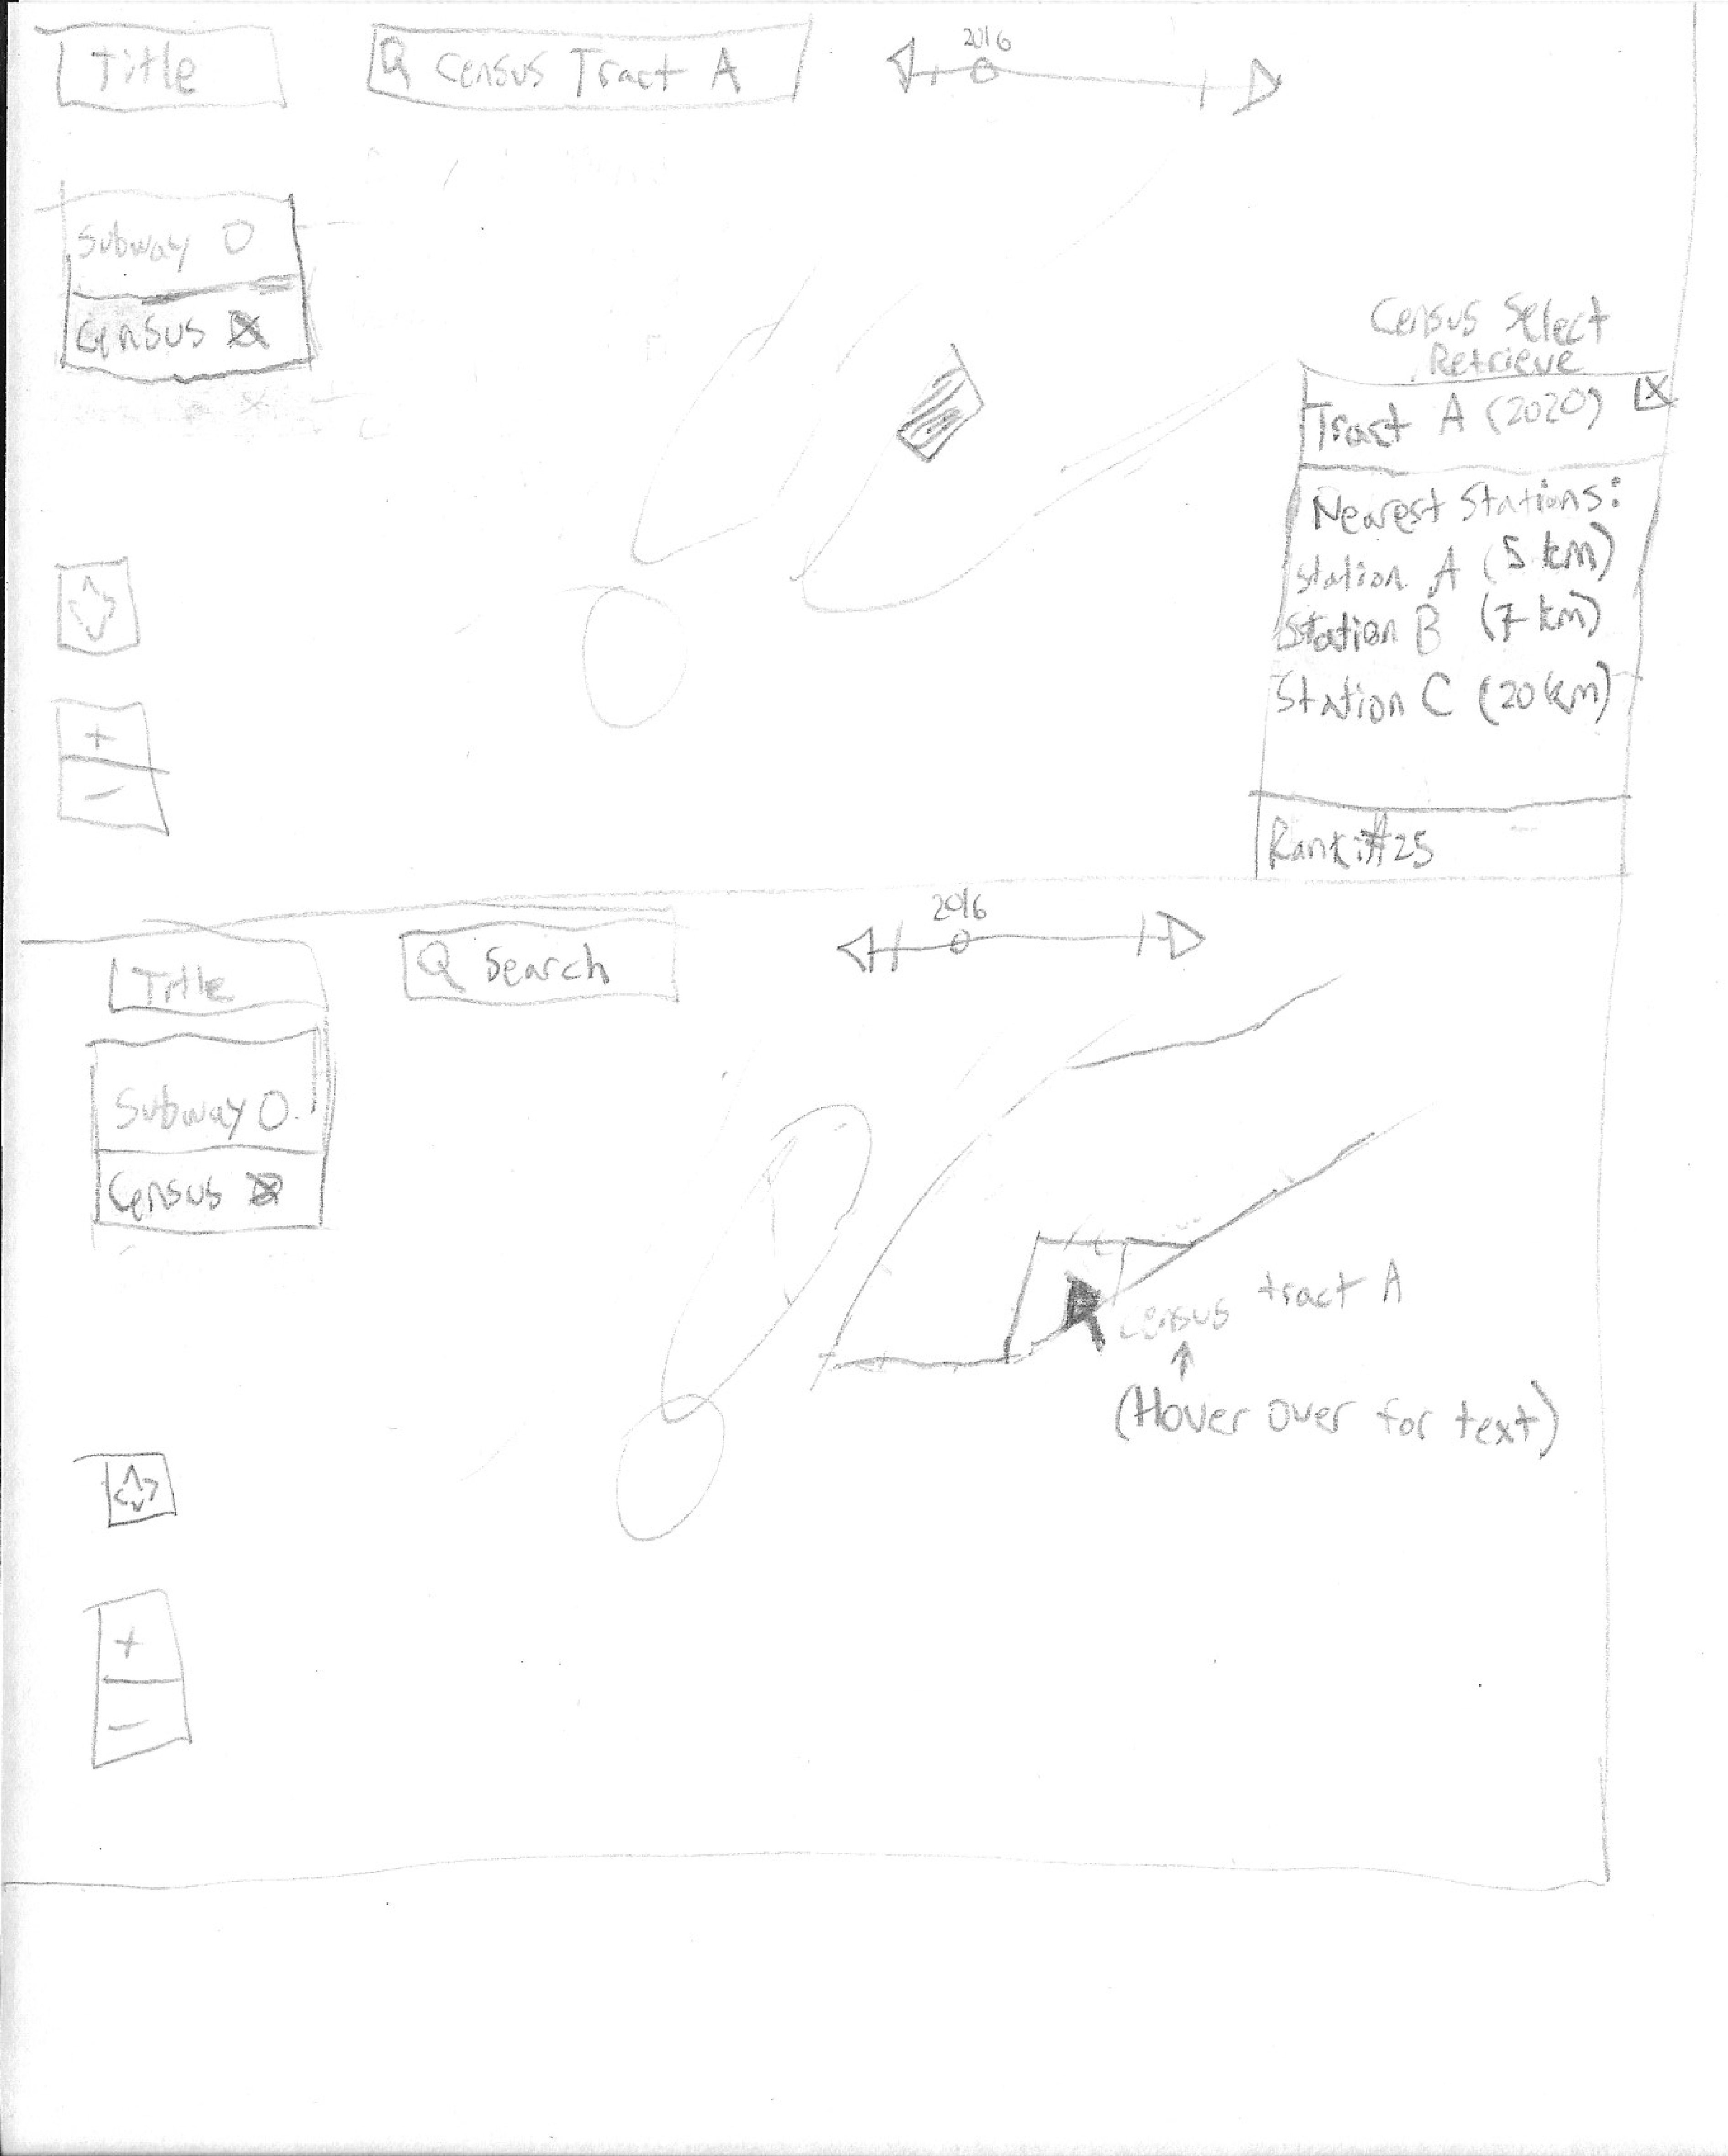 Title
Census Tract A
2016
Subway
Census
Census Select
Retrieve
Tract A (2020)
X
Nearest Stations:
Station A (5 km)
Station B (7 km)
Station C (20 km)
+
-
Rank: #25
2016
Title
Search
Subway
Census
Census tract A
(Hover over for text)
+
-